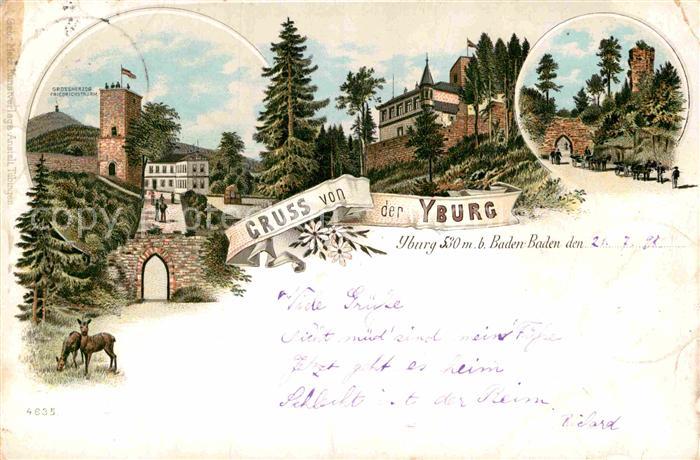 GROSSHERZOG
FRIEDRICHSTHURM
GRUSS von
der YBURG
Yburg 530 m. b. Baden-Baden den 21. 7. 98
Viele Grüße
Nicht müd' sind meine Füße
Jetzt geht es heim
Schlecht ist der Reim.
Richard
4635